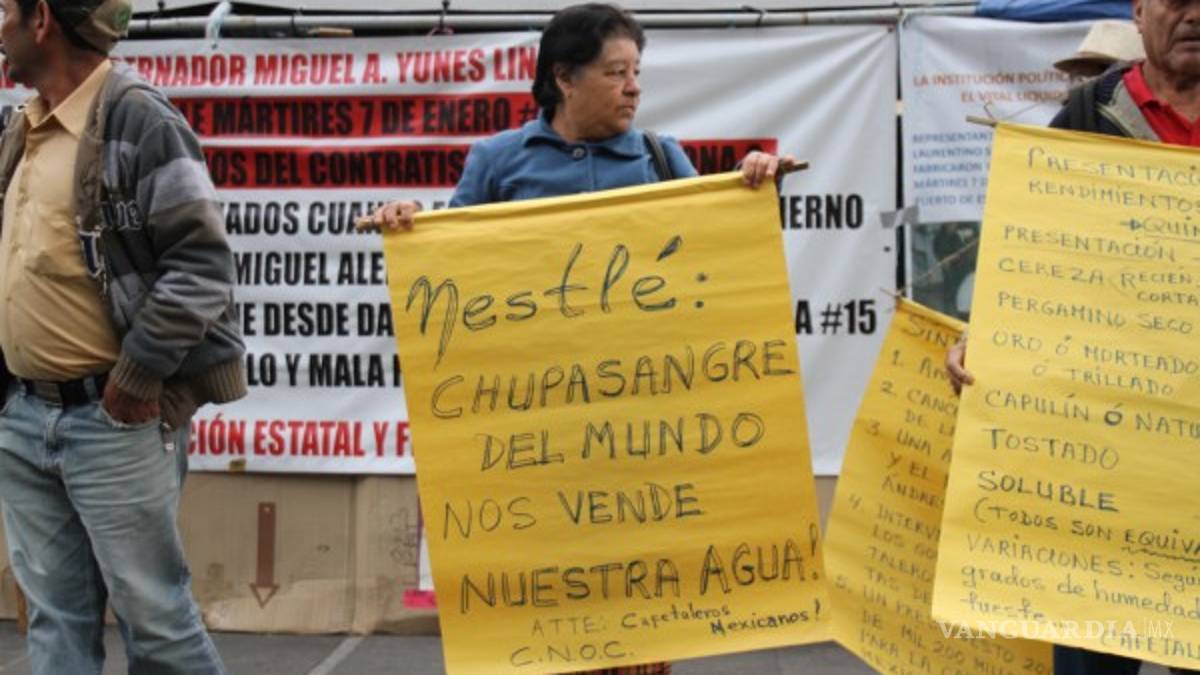 ERNADOR MIGUEL A. YUNES LIN
LE MÁRTIRES 7 DE ENERO #
OS DEL CONTRATIS
ONA
TADOS CUAN
IERNO
MIGUEL ALE
E DESDE DA
A #15
LO Y MALA
CIÓN ESTATAL Y F
Nestlé:
CHUPASANGRE
DEL MUNDO
NOS VENDE
NUESTRA AGUA!
ATTE: Cafetaleros
Mexicanos!
C.N.O.C.
LA INSTITUCIÓN POLÍTIC
EL VITAL LIQUID
REPRESENTAN
LAURENTINO S
MÁRTIRES 7 D
PUERTO DE
SIN
1. A
2. CANC
DE L
3. UNA A
Y EL
ANDRE
4. INTERV
LOS GO
TALERO
TAS DE
5. UN PRE
DE MIL 200 MILL
PARA LA C
MÉXICO
PRESENTACI
RENDIMIENTO
QUIN
PRESENTACIÓN
CEREZA (RECIÉN
CORTA
PERGAMINO SECO
ORO Ó MORTEADO
Ó TRILLADO
CAPULÍN Ó NATU
TOSTADO
SOLUBLE
(TODOS SON EQUIVA
VARIACIONES: Segú
grados de humedad
fuente
CAFETAL
VANGUARDIA|MX